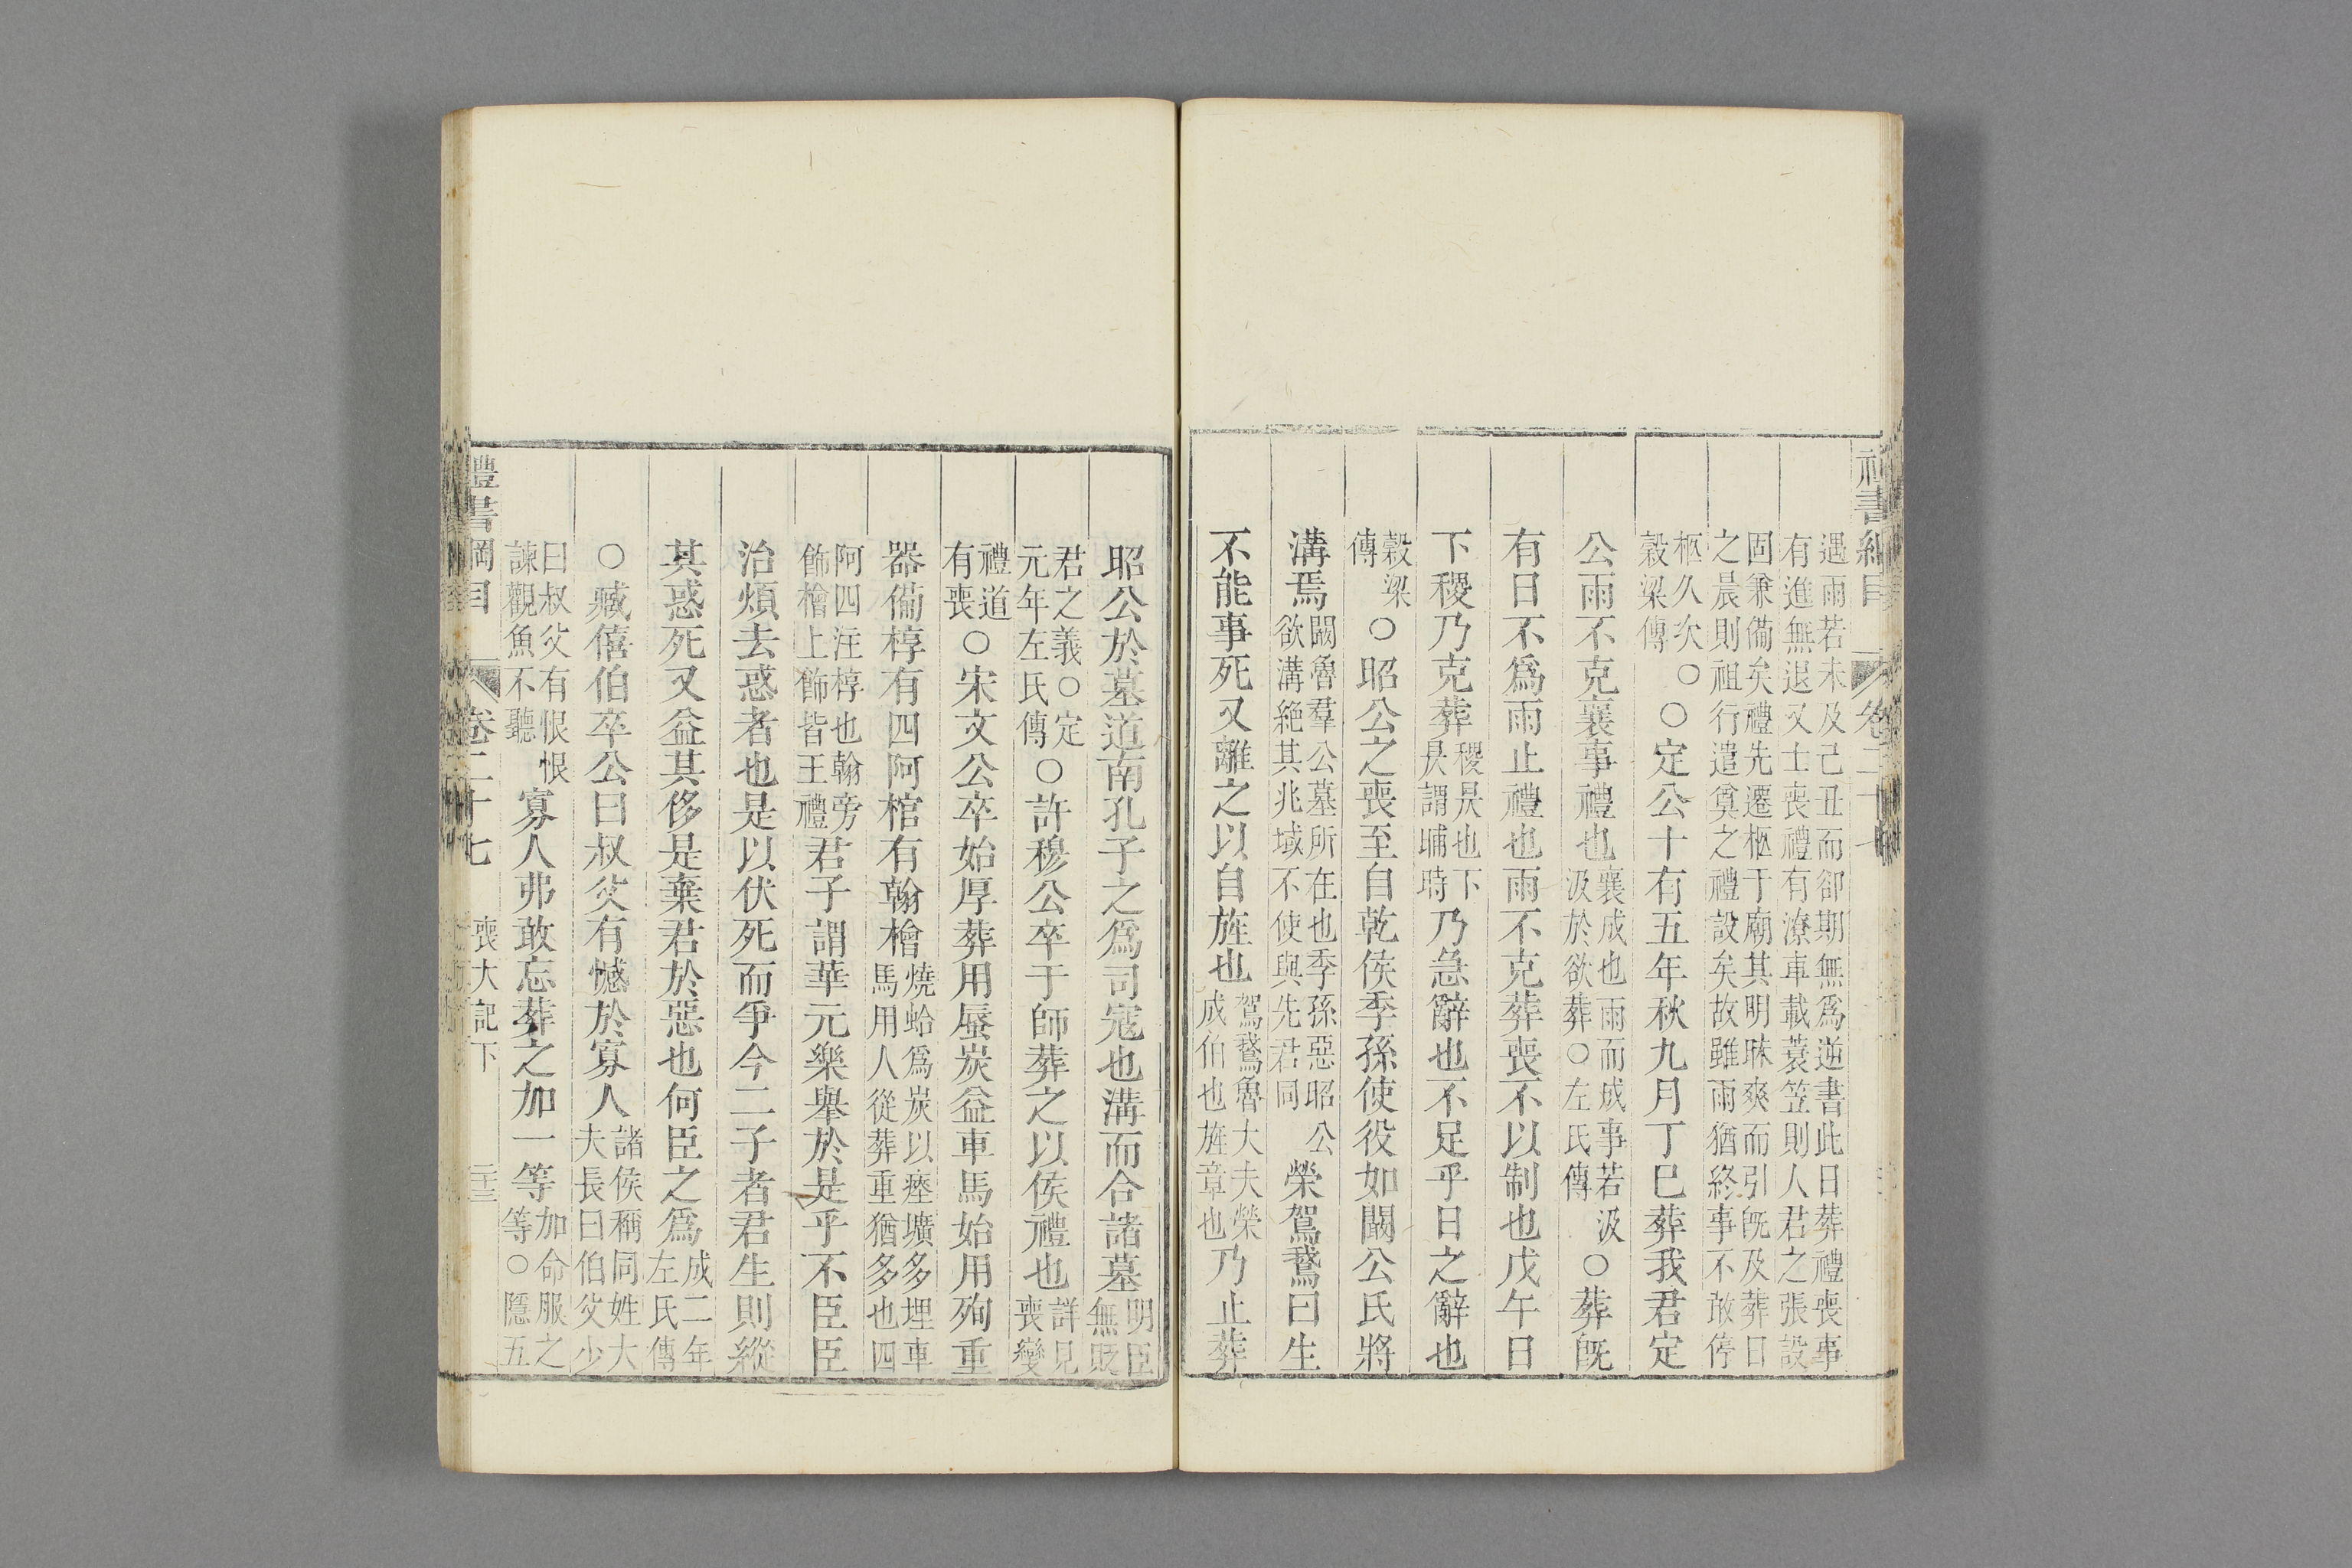 禮書綱目 卷二十七
遇雨若未及己丑而卻期無爲逆書此日葬禮喪事
有進無退又士喪禮有潦車載蓑笠則人君之張設
固兼備矣禮先遷柩于廟其明昧爽而引旣及葬日
之晨則祖行遣奠之禮設矣故雖雨猶終事不敢停
柩久次○穀梁傳○定公十有五年秋九月丁巳葬我君定
公雨不克襄事禮也襄成也雨而成事若汲汲於欲葬○左氏傳○葬旣
有日不爲雨止禮也雨不克葬喪不以制也戊午日
下稷乃克葬稷昃也下昃謂晡時乃急辭也不足乎日之辭也
穀梁傳○昭公之喪至自乾侯季孫使役如闞公氏將
溝焉闞魯羣公墓所在也季孫惡昭公欲溝絶其兆域不使與先君同榮駕鵞曰生
不能事死又離之以自旌也駕鵞魯大夫榮成伯也旌章也乃止葬
昭公於墓道南孔子之爲司寇也溝而合諸墓明臣無貶
君之義○定元年左氏傳○許穆公卒于師葬之以侯禮也詳見喪變
禮道有喪○宋文公卒始厚葬用蜃炭益車馬始用殉重
器備椁有四阿棺有翰檜燒蛤爲炭以瘞壙多埋車馬用人從葬重猶多也四
阿四注椁也翰旁飾檜上飾皆王禮君子謂華元樂舉於是乎不臣臣
治煩去惑者也是以伏死而爭今二子者君生則縱
其惑死又益其侈是棄君於惡也何臣之爲成二年左氏傳
○臧僖伯卒公曰叔父有憾於寡人諸侯稱同姓大夫長曰伯父少
曰叔父有恨恨諫觀魚不聽寡人弗敢忘葬之加一等加命服之等○隱五
禮書綱目 卷二十七 喪大記下 二十三